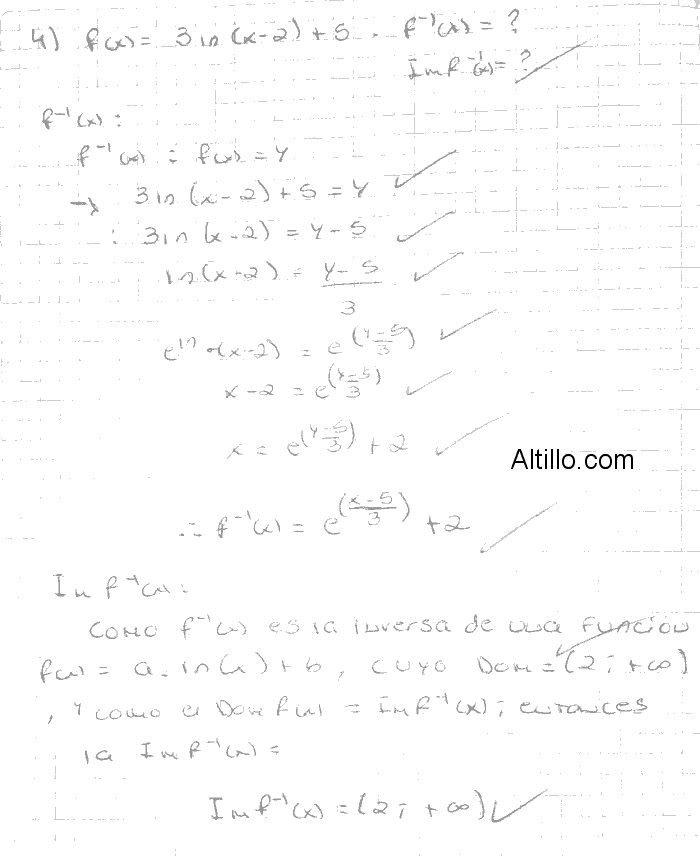 4) f(x) = 3 ln (x-2) + 5 . f⁻¹(x) = ?
Im f⁻¹(x) = ?
f⁻¹(x) :
f⁻¹(x) : f(x) = y
→ 3 ln (x-2) + 5 = y
: 3 ln (x-2) = y-5
ln (x-2) = (y-5)/3
e^ln (x-2) = e^((y-5)/3)
x-2 = e^((y-5)/3)
x = e^((y-5)/3) + 2
Altillo.com
∴ f⁻¹(x) = e^((x-5)/3) + 2
Im f⁻¹(x) :
Como f⁻¹(x) es la inversa de una función
f(x) = a . ln (x) + b , cuyo Dom = (2 ; +∞)
, y como el Dom f(x) = Im f⁻¹(x) ; entonces
la Im f⁻¹(x) =
Im f⁻¹(x) = (2 ; +∞)